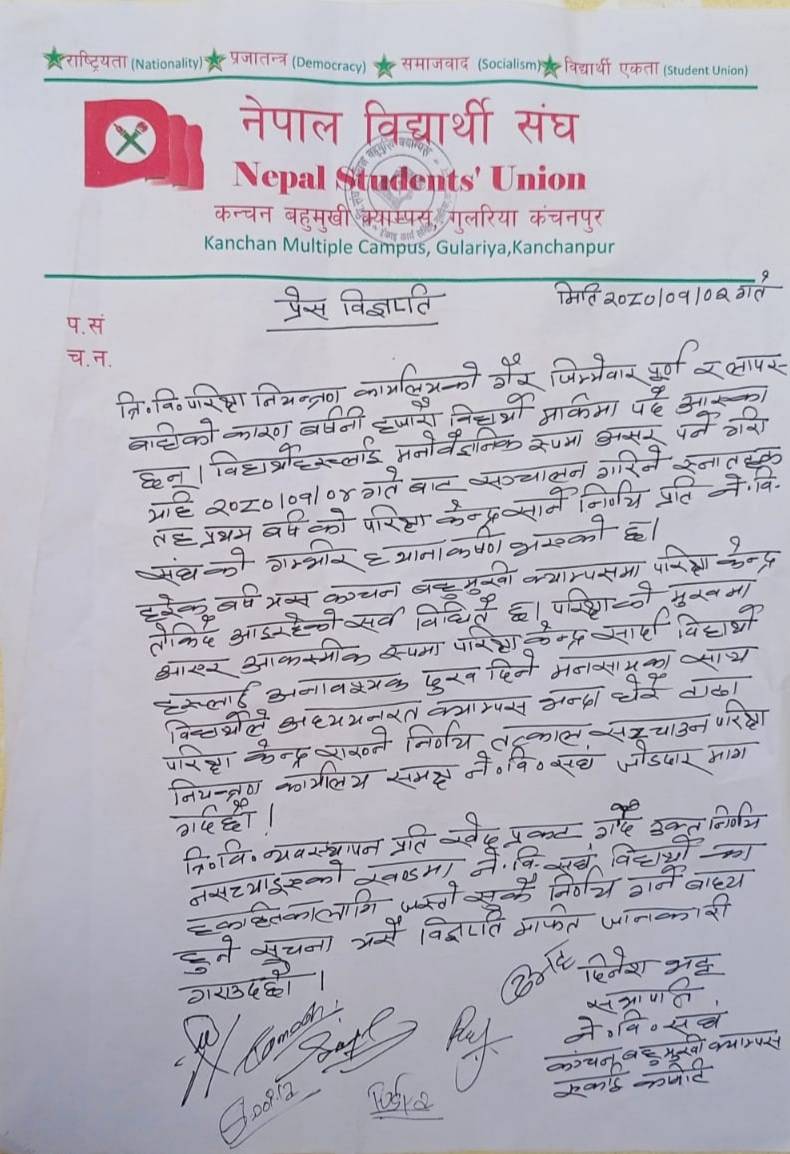 राष्ट्रियता (Nationality) प्रजातन्त्र (Democracy) समाजवाद (Socialism) विद्यार्थी एकता (Student Union)
नेपाल विद्यार्थी संघ
Nepal Students' Union
कन्चन बहुमुखी क्याम्पस, गुलरिया कंचनपुर
Kanchan Multiple Campus, Gulariya,Kanchanpur
प्रेस विज्ञप्ति
मिति २०८०/०१/०२ गते
प.सं
च.न.
त्रि.वि. परिक्षा नियन्त्रण कार्यालयको गैर जिम्मेवार पूर्ण र लापर-
वाहीको कारण बर्षेनी हजारौ विद्यार्थी मार्कमा पर्दै आएका
छन् । विद्यार्थीहरूलाई मनोवैज्ञानिक रूपमा असर पर्ने गरी
२०८०/०१/०४ गते बाट सञ्चालन गरिने स्नातक
तह प्रथम बर्ष को परिक्षा केन्द्र सार्ने निर्णय प्रति ने.वि.
संघ को गम्भीर ध्यानाकर्षण भएको छ।
हरेक बर्ष यस कञ्चन बहुमुखी क्याम्पसमा परिक्षा केन्द्र
तोकिदै आइरहेको सर्व विधितै छ। परिक्षाको मुखमा
आएर आकस्मीक रूपमा परिक्षा केन्द्र सार्दा विद्यार्थी
हरूलाई अनावश्यक दुःख दिने मनसायका साथ
विद्यार्थीले अध्ययनरत क्याम्पस भन्दा धेरै टाढा
परिक्षा केन्द्र राख्ने निर्णय तत्काल सच्चाउन परिक्षा
नियन्त्रण कार्यालय समक्ष ने.वि. संघ जोडदार माग
गर्दछौ।
त्रि.वि. व्यवस्थापन प्रति खेद प्रकट गर्दै उक्त निर्णय
नसच्याइएको खण्डमा ने.वि. संघ विद्यार्थी का
हकहितकालागि जस्तो सुकै निर्णय गर्न बाध्य
हुने सुचना यसै विज्ञप्ति मार्फत जानकारी
गराउदछौ ।
दिनेश भट्ट
सभापति
ने.वि. संघ
कञ्चन बहुमुखी क्याम्पस
इकाई कमिटि